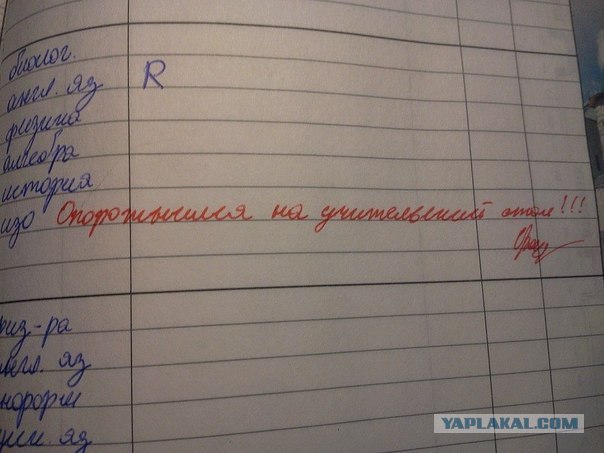 биолог.
англ. яз R
физика
алгебра
история
изо Опорожнился на учительский стол!!!
физ-ра
англ. яз
информ
YAPLAKAL.COM